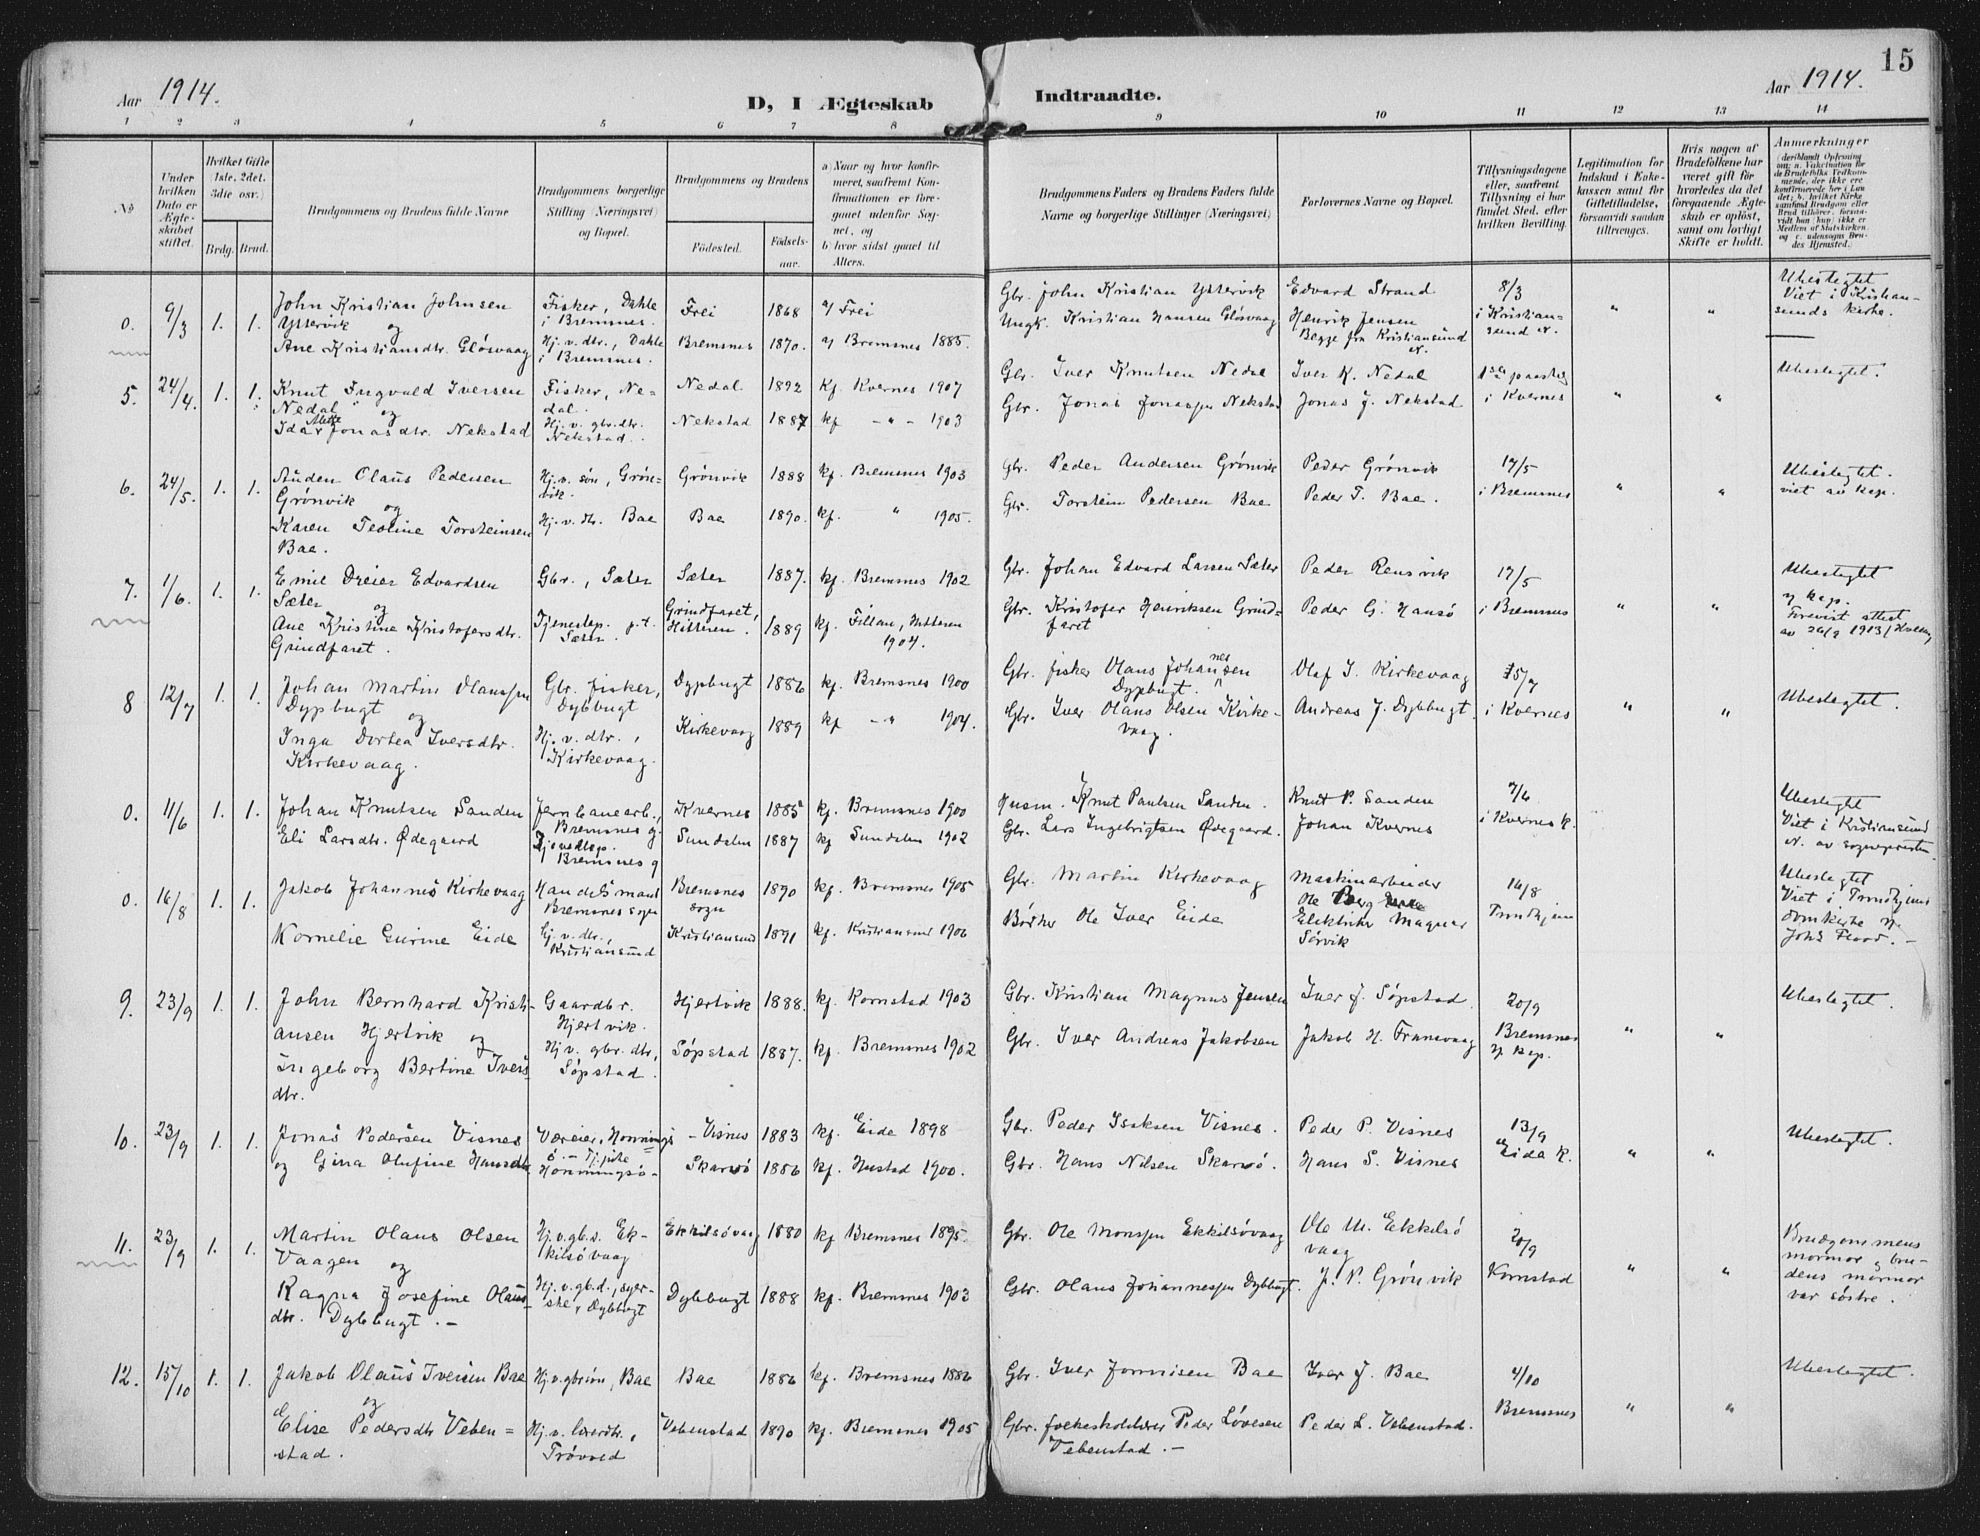 Aar 1914.
D, I Ægteskab Indtraadte.
Aar 1914.
15
1 2 3 4 5 6 7 8 9 10 11 12 13 14
No
Under hvilken Dato er Ægteskabet stiftet.
Hvilket Gifte (1ste, 2det, 3die osv.)
Brdg. Brud.
Brudgommens og Brudens fulde Navne
Brudgommens borgerlige Stilling (Næringsvei) og Bopæl.
Brudgommens og Brudens
Fødested. Fødselsaar.
a) Naar og hvor konfirmeret, saafremt Konfirmationen er foregaaet udenfor Sognet, og
b) hvor sidst gaaet til Alters.
Brudgommens Faders og Brudens Faders fulde Navne og borgerlige Stillinger (Næringsvei)
Forlovernes Navne og Bopæl.
Tillysningsdagene eller, saafremt Tillysning ei har fundet Sted, efter hvilken Bevilling.
Legitimation for Indskud i Enkekassen samt for Giftetilladelse, forsaavidt saadan tiltrænges.
Hvis nogen af Brudefolkene har været gift før hvorledes da det foregaaende Ægteskab er opløst, samt om lovligt Skifte er holdt.
Anmærkninger
0. 9/3 1. 1. John Kristian Johnsen Ystervik og
Ane Kristiansdtr. Gløsvaag
Fisker, Dahle i Bremsnes.
Hj. v. dtr., Dahle i Bremsnes.
Frei 1868 a/ Frei
Bremsnes 1870. a/ Bremsnes 1885.
Gbr. John Kristian Ystervik
Ungk. Kristian Hansen Gløsvaag
Edvard Strand
Henrik Jensen
Begge fra Kristiansund N.
8/3 i Kristiansund N. " "
Ubeslegtet
Viet i Kristiansunds kirke.
5. 24/4. 1. 1. Knut Ingvald Iversen Nedal og
Ida Mette Jonasdtr. Nekstad
Fisker, Nedal.
Hj. v. gbr. dtr. Nekstad.
Nedal 1892 kf. Kvernes 1907
Nekstad 1887 kf - " - 1903
Gbr. Iver Knutsen Nedal
Gbr. Jonas Jonassen Nekstad
Iver K. Nedal
Jonas J. Nekstad
i Kvernes " "
Ubeslegtet.
6. 24/5. 1. 1. Auden Olaus Pedersen Grønvik og
Karen Teoline Torsteinsen Bae.
Hj. v. søn, Grønvik.
Hj. v. dtr. Bae
Grønvik 1888 kf. Bremsnes 1903
Bae 1890. kf. " 1905.
Gbr. Peder Andersen Grønvik
Gbr. Torstein Pedersen Bae
Peder Grønvik
Peder T. Bae.
17/5 i Bremsnes " "
Ubeslegtet.
viet av kap.
7. 1/6. 1. 1. Emil Dreier Edvardsen Sæter og
Ane Kristine Kristofersdtr. Grindfaret.
Gbr., Sæter
Tjenestep. p.t. Sæter.
Sæter 1887. kf. Bremsnes 1902
Grindfaret, Hitteren. 1889 kf. Fillan, Hitteren 1904.
Gbr. Johan Edvard Larsen Sæter
Gbr. Kristofer Henriksen Grindfaret
Peder Rensvik
Peder G. Hansø
17/5 i Bremsnes " "
Ubeslegtet
v/ kap.
Forevist attest
8 12/7 1. 1. Johan Martin Olaussen Dypbugt og
Inga Dortea Iversdtr. Kirkevaag.
Gbr. fisker, Dybbugt
Hj. v. dtr., Kirkevaag.
Dypbugt 1886 kf. Bremsnes 1900
Kirkevaag 1889 kf - " 1904.
Gbr. fisker Olaus Johannessen Dypbugt.
Gbr. Iver Olaus Olsen Kirkevaag.
Olaf I. Kirkevaag
Andreas J. Dybbugt.
5/7 i Kvernes " "
Ubeslegtet.
0. 11/6 1. 1. Johan Knutsen Sanden
Eli Larsdtr. Ødegaard
Jernbanearb., Bremsnes g.
Bremsnes g
Kvernes 1885 kf. Bremsnes 1900
Sundalen 1887 kf Sundalen 1902
Husm. Knut Paulsen Sanden.
Gbr. Lars Ingebrigtsen Ødegaard.
Knut P. Sanden
Johan Kvernes
7/6 i Kvernes k.
Ubeslegtet
Viet i Kristiansund N. av sognepresten.
0. 16/8 1. 1. Jakob Johannes Kirkevaag
Kornelie Gurine Eide
Handelsmand Bremsnes sogn
Hj. v. dtr., Kristiansund
Bremsnes sogn 1890 kf. Bremsnes 1905
Kristiansund 1891 kf. Kristiansund 1906
Gbr. Martin Kirkevaag
Bødker Ole Iver Eide
Maskinarbeider Ole Berg
Elektriker Magnus Sørvik
16/8 Trondhjem
Ubeslegtet
Viet i Trondhjems domkirke v/ Johs Flood. -
9. 23/9 1. 1. John Bernhard Kristiansen Hjertvik og
Ingeborg Bertine Iversdtr.
Gaardbr. Hjertvik.
Hj v. gbr. dtr, Søpstad.
Hjertvik 1888. kf. Kornstad 1903
Søpstad 1887. kf. Bremsnes 1902
Gbr. Kristian Magnus Jensen
Gbr. Iver Andreas Jakobsen
Iver J. Søpstad.
Jakob H. Fransvaag
20/9 Bremsnes v/ kap. " "
Ubeslegtet.
10. 23/9 1. 1. Jonas Pedersen Visnes
og Gina Olufine Hansdtr
Væreier, Honningsø. - Tj.pike Honningsø -
Visnes 1883 kf. Eide 1898
Skarsø 1886 kf. Hustad 1900.
Gbr. Peder Isaksen Visnes.
Gbr. Hans Nilsen Skarsø.
Peder P. Visnes
Hans S. Visnes
13/9 Eide k. " "
Ubeslegtet.
11. 23/9 1. 1. Martin Olaus Olsen Vaagen og
Ragna Josefine Olausdtr. Dybbugt. -
Hj. v. gb. s. Ekkilsøvaag
Hj. v. gb. d., syerske, Dybbugt
Ekkilsøvaag 1880 kf Bremsnes 1895.
Dybbugt 1888 kf. Bremsnes 1903
Gbr. Ole Monssen Ekkilsøvaag
Gbr. Olaus Johannessen Dybbugt.
Ole M. Ekkilsøvaag
J. P. Grønvik
20/9 Kornstad " "
Brudgommens mormor og brudens mormor var søstre.
12. 15/10 1. 1. Jakob Olaus Iversen Bae og
Elise Pedersdtr Vebenstad.
Hj. v. gbrsøn, Bae
Hj. v. lærerdtr., Trøvold
Bae 1886 kf. Bremsnes 1886
Vebenstad 1890 kf. Bremsnes 1905
Gbr. Iver Jonnisen Bae
Gbr. folkeskolelærer Peder Løvesen Vebenstad. -
Iver J. Bae
Peder L. Vebenstad.
4/10 Bremsnes " "
Ubeslegtet.